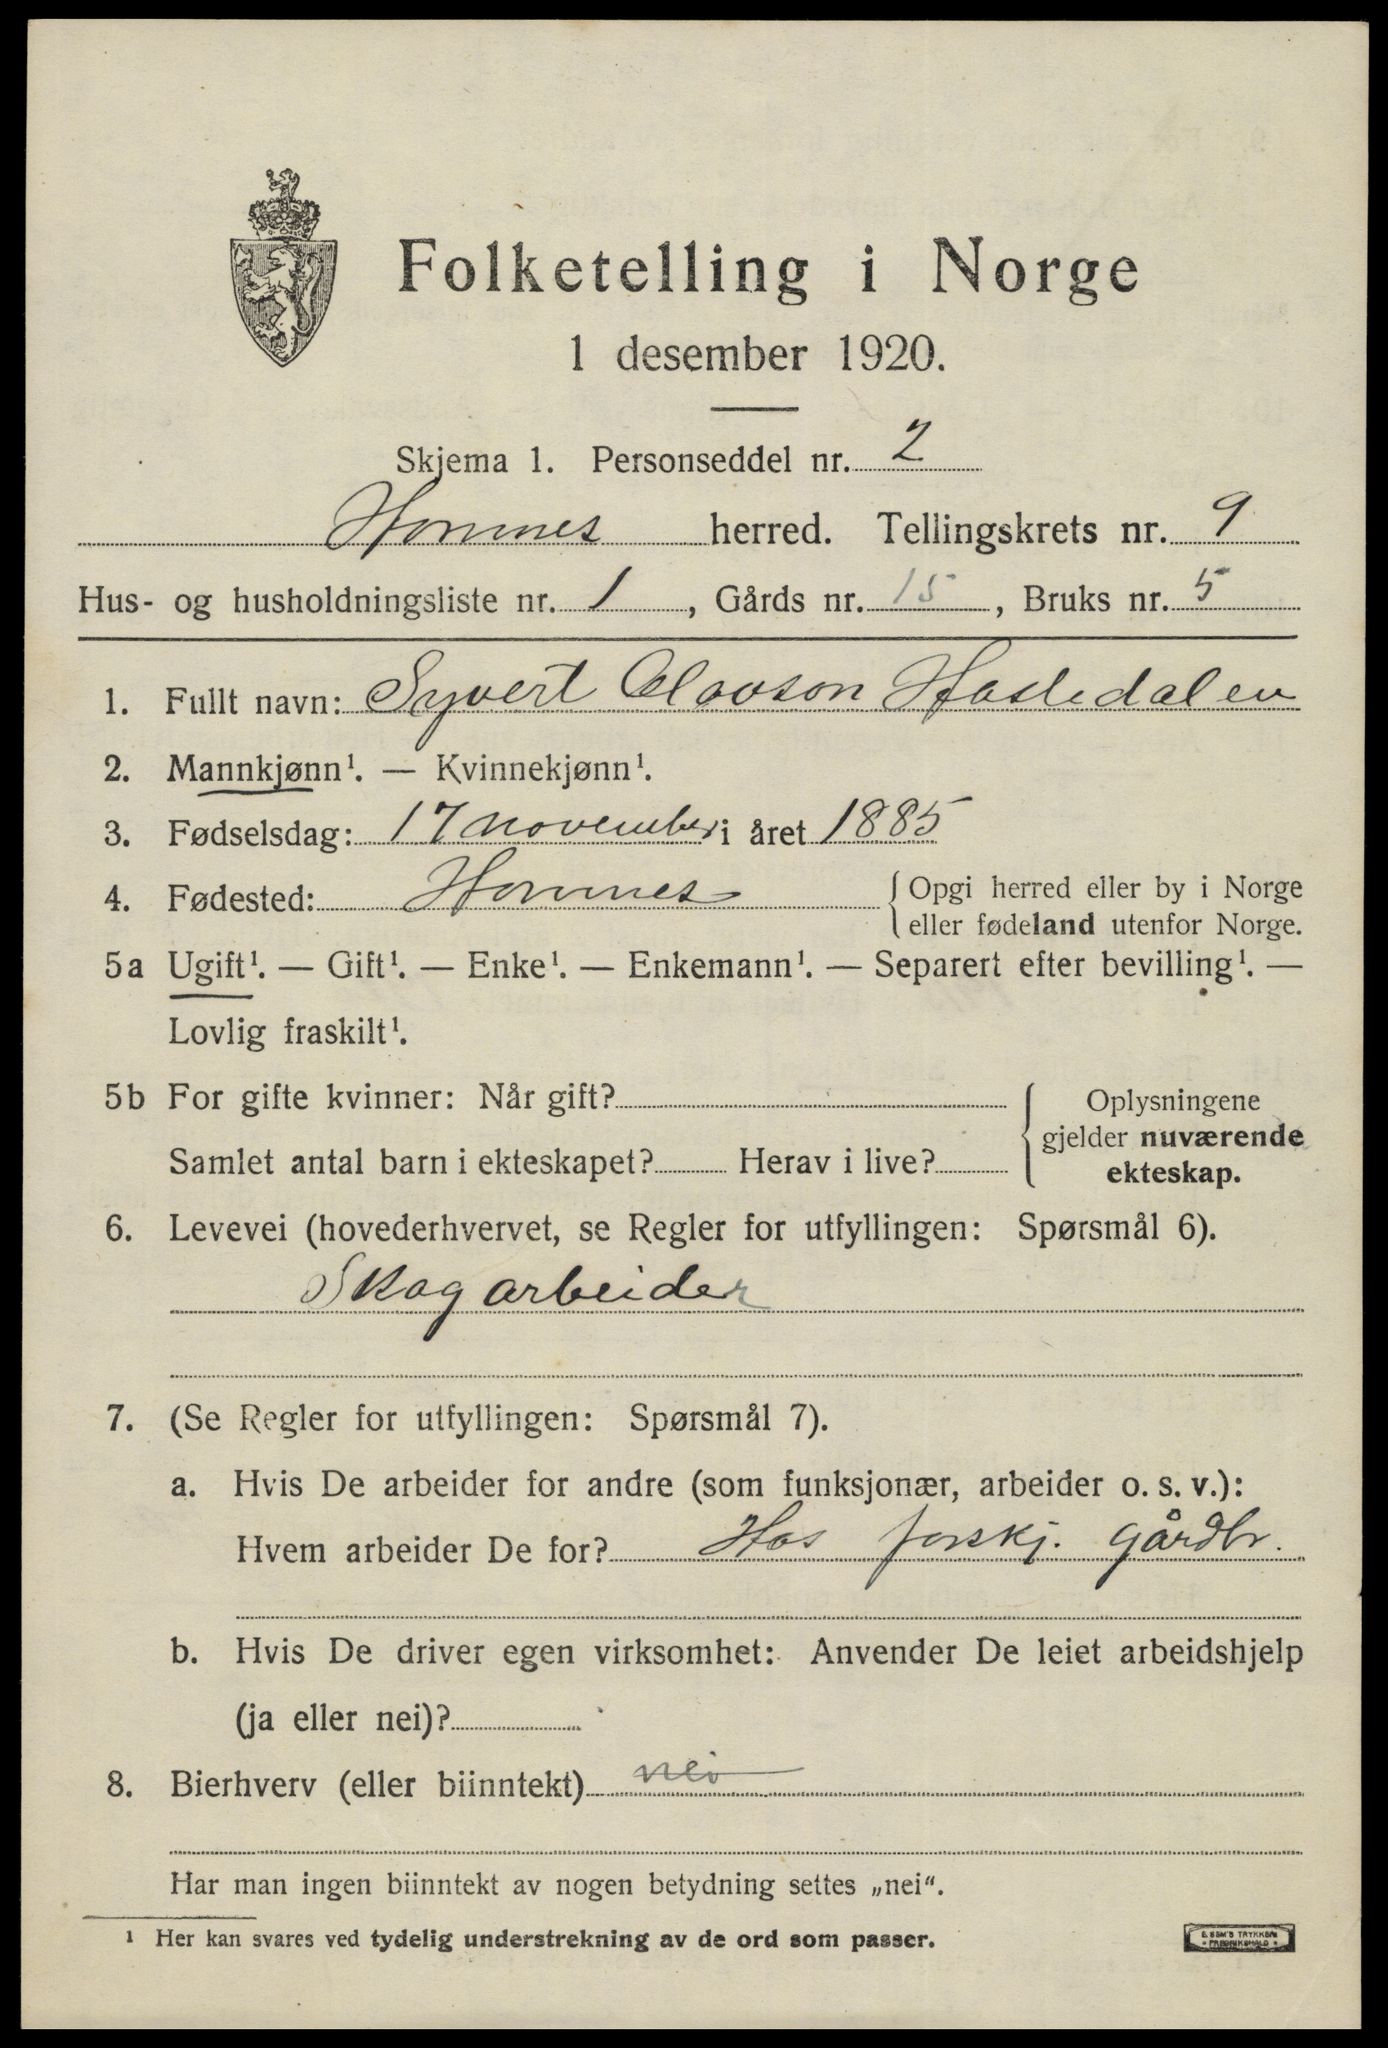 Folketelling i Norge
1 desember 1920.
Skjema 1. Personseddel nr. 2
Hornnes herred. Tellingskrets nr. 9
Hus- og husholdningsliste nr. 1, Gårds nr. 15, Bruks nr. 5
1. Fullt navn: Syvert Olavson Hasledalen
2. Mannkjønn¹. — Kvinnekjønn¹.
3. Fødselsdag: 17 november i året 1885
4. Fødested: Hornnes { Opgi herred eller by i Norge
eller fødeland utenfor Norge.
5a Ugift¹. — Gift¹. — Enke¹. — Enkemann¹. — Separert efter bevilling¹. —
Lovlig fraskilt¹.
5b For gifte kvinner: Når gift?
Samlet antal barn i ekteskapet? Herav i live?
{ Oplysningene
gjelder nuværende
ekteskap.
6. Levevei (hovederhvervet, se Regler for utfyllingen: Spørsmål 6).
Skogarbeider
7. (Se Regler for utfyllingen: Spørsmål 7).
a. Hvis De arbeider for andre (som funksjonær, arbeider o. s. v.):
Hvem arbeider De for? Hos forskj. gårdbr.
b. Hvis De driver egen virksomhet: Anvender De leiet arbeidshjelp
(ja eller nei)?
8. Bierhverv (eller biinntekt) nei
Har man ingen biinntekt av nogen betydning settes „nei“.
¹ Her kan svares ved tydelig understrekning av de ord som passer.
E. SEM'S TRYKKERI
FREDRIKSHALD